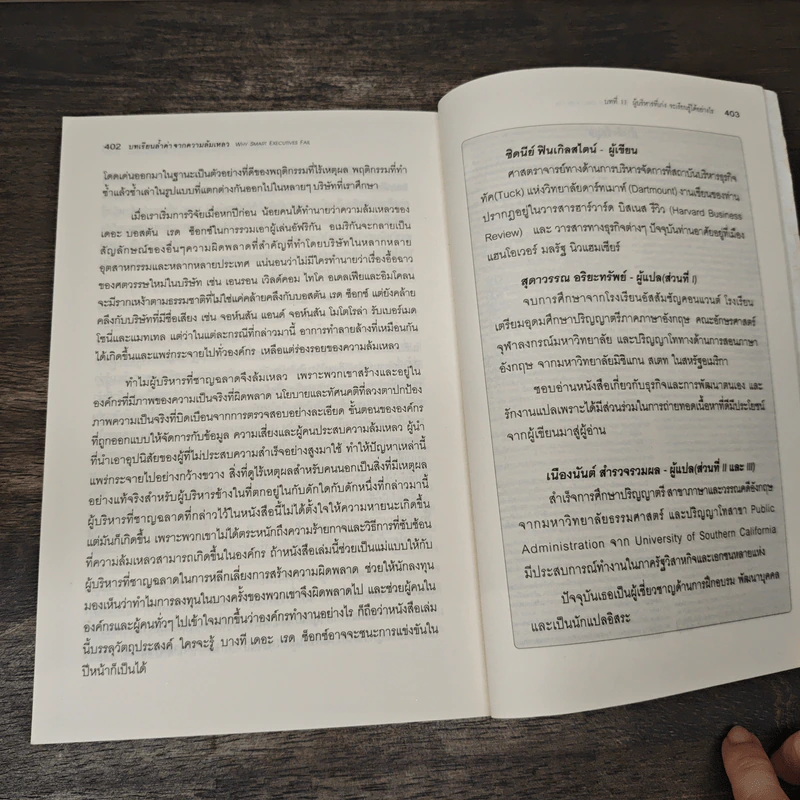 402 บทเรียนล้ำค่า จากความล้มเหลว WHY SMART EXECUTIVES FAIL
โดดเด่นออกมาในฐานะเป็นตัวอย่างที่ดีของพฤติกรรมที่ไร้เหตุผล พฤติกรรมที่ทำ
ซ้ำแล้วซ้ำเล่าในรูปแบบที่แตกต่างกันออกไปในหลายๆ บริษัทที่เราศึกษา
เมื่อเราเริ่มการวิจัยเมื่อหกปีก่อน น้อยคนได้ทำนายว่าความล้มเหลวของ
เดอะ บอสตัน เรด ซ็อกซ์ในการรวมเอาผู้เล่นอัฟริกัน อเมริกันจะกลายเป็น
สัญลักษณ์ของอื่นๆความผิดพลาดที่สำคัญที่ทำโดยบริษัทในหลากหลาย
อุตสาหกรรมและหลากหลายประเทศ แน่นอนว่าไม่มีใครทำนายว่าเรื่องอื้อฉาว
ของศตวรรษใหม่ในบริษัท เช่น เอนรอน เวิลด์คอม ไทโค อเดลเฟียและอิมโคลน
จะมีรากเหง้าตามธรรมชาติที่ไม่ใช่แค่คล้ายคลึงกับบอสตัน เรด ซ็อกซ์ แต่ยังคล้าย
คลึงกับบริษัทที่มีชื่อเสียง เช่น จอห์นสัน แอนด์ จอห์นสัน โมโตโรล่า รับเบอร์เมด
โซนี่และแมทเทล แต่ว่าในแต่ละกรณีที่กล่าวมานี้ อาการทำลายล้างที่เหมือนกัน
ได้เกิดขึ้นและแพร่กระจายไปทั่วองค์กร เหลือแต่ร่องรอยของความล้มเหลว
ทำไมผู้บริหารที่ชาญฉลาดจึงล้มเหลว เพราะพวกเขาสร้างและอยู่ใน
องค์กรที่มีภาพของความเป็นจริงที่ผิดพลาด นโยบายและทัศนคติที่ลวงตาปกป้อง
ภาพความเป็นจริงที่บิดเบือนจากการตรวจสอบอย่างละเอียด ขั้นตอนขององค์กร
ที่ถูกออกแบบให้จัดการกับข้อมูล ความเสี่ยงและผู้คนประสบความล้มเหลว ผู้นำ
ที่นำเอาอุปนิสัยของผู้ที่ไม่ประสบความสำเร็จอย่างสูงมาใช้ ทำให้ปัญหาเหล่านี้
แพร่กระจายไปอย่างกว้างขวาง สิ่งที่ดูไร้เหตุผลสำหรับคนนอกเป็นสิ่งที่มีเหตุผล
อย่างแท้จริงสำหรับผู้บริหารข้างในที่ตกอยู่ในกับดักใดกับดักหนึ่งที่กล่าวมานี้
ผู้บริหารที่ชาญฉลาดที่กล่าวไว้ในหนังสือนี้ไม่ได้ตั้งใจให้ความหายนะเกิดขึ้น
แต่มันก็เกิดขึ้น เพราะพวกเขาไม่ได้ตระหนักถึงความร้ายกาจและวิธีการที่ซับซ้อน
ที่ความล้มเหลวสามารถเกิดขึ้นในองค์กร ถ้าหนังสือเล่มนี้ช่วยเป็นแม่แบบให้กับ
ผู้บริหารที่ชาญฉลาดในการหลีกเลี่ยงการสร้างความผิดพลาด ช่วยให้นักลงทุน
มองเห็นว่าทำไมการลงทุนในบางครั้งของพวกเขาจึงผิดพลาดไป และช่วยผู้คนใน
องค์กรและผู้คนทั่วๆ ไปเข้าใจมากขึ้นว่าองค์กรทำงานอย่างไร ก็ถือว่าหนังสือเล่ม
นี้บรรลุวัตถุประสงค์ ใครจะรู้ บางที เดอะ เรด ซ็อกซ์อาจจะชนะการแข่งขันใน
ปีหน้าก็เป็นได้
บทที่ 11 ผู้บริหารที่เก่ง จะเรียนรู้ได้อย่างไร 403
ซิดนีย์ ฟินเกิลสไตน์ - ผู้เขียน
ศาสตราจารย์ทางด้านการบริหารจัดการที่สถาบันบริหารธุรกิจ
ทัค(Tuck) แห่งวิทยาลัยดาร์ทเมาท์ (Dartmount) งานเขียนของท่าน
ปรากฏอยู่ในวารสารฮาร์วาร์ด บิสเนส รีวิว (Harvard Business
Review) และ วารสารทางธุรกิจต่างๆ ปัจจุบันท่านอาศัยอยู่ที่เมือง
แฮนโอเวอร์ มลรัฐ นิวแฮมเชียร์
สุดาวรรณ อริยะทรัพย์ - ผู้แปล(ส่วนที่ I)
จบการศึกษาจากโรงเรียนอัสสัมชัญคอนแวนต์ โรงเรียน
เตรียมอุดมศึกษาปริญญาตรีภาคภาษาอังกฤษ คณะอักษรศาสตร์
จุฬาลงกรณ์มหาวิทยาลัย และปริญญาโททางด้านการสอนภาษา
อังกฤษ จากมหาวิทยาลัยมิชิแกน สเตท ในสหรัฐอเมริกา
ชอบอ่านหนังสือเกี่ยวกับธุรกิจและการพัฒนาตนเอง และ
รักงานแปลเพราะได้มีส่วนร่วมในการถ่ายทอดเนื้อหาที่ดีมีประโยชน์
จากผู้เขียนมาสู่ผู้อ่าน
เนืองนันต์ สำรวจรวมผล - ผู้แปล(ส่วนที่ II และ III)
สำเร็จการศึกษาปริญญาตรี สาขาภาษาและวรรณคดีอังกฤษ
จากมหาวิทยาลัยธรรมศาสตร์ และปริญญาโทสาขา Public
Administration จาก University of Southern California
มีประสบการณ์ทำงานในภาครัฐวิสาหกิจและเอกชนหลายแห่ง
ปัจจุบันเธอเป็นผู้เชี่ยวชาญด้านการฝึกอบรม พัฒนาบุคคล
และเป็นนักแปลอิสระ